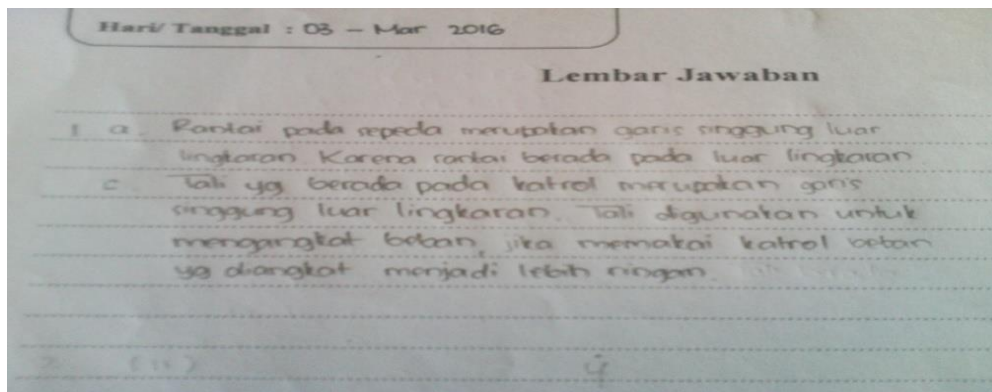 Hari/ Tanggal : 03 - Mar 2016
Lembar Jawaban
1 a. Rantai pada sepeda merupakan garis singgung luar
lingkaran Karena rantai berada pada luar lingkaran
c Tali yg berada pada katrol merupakan garis
singgung luar lingkaran. Tali digunakan untuk
mengangkat beban, jika memakai katrol beban
yg diangkat menjadi lebih ringan.